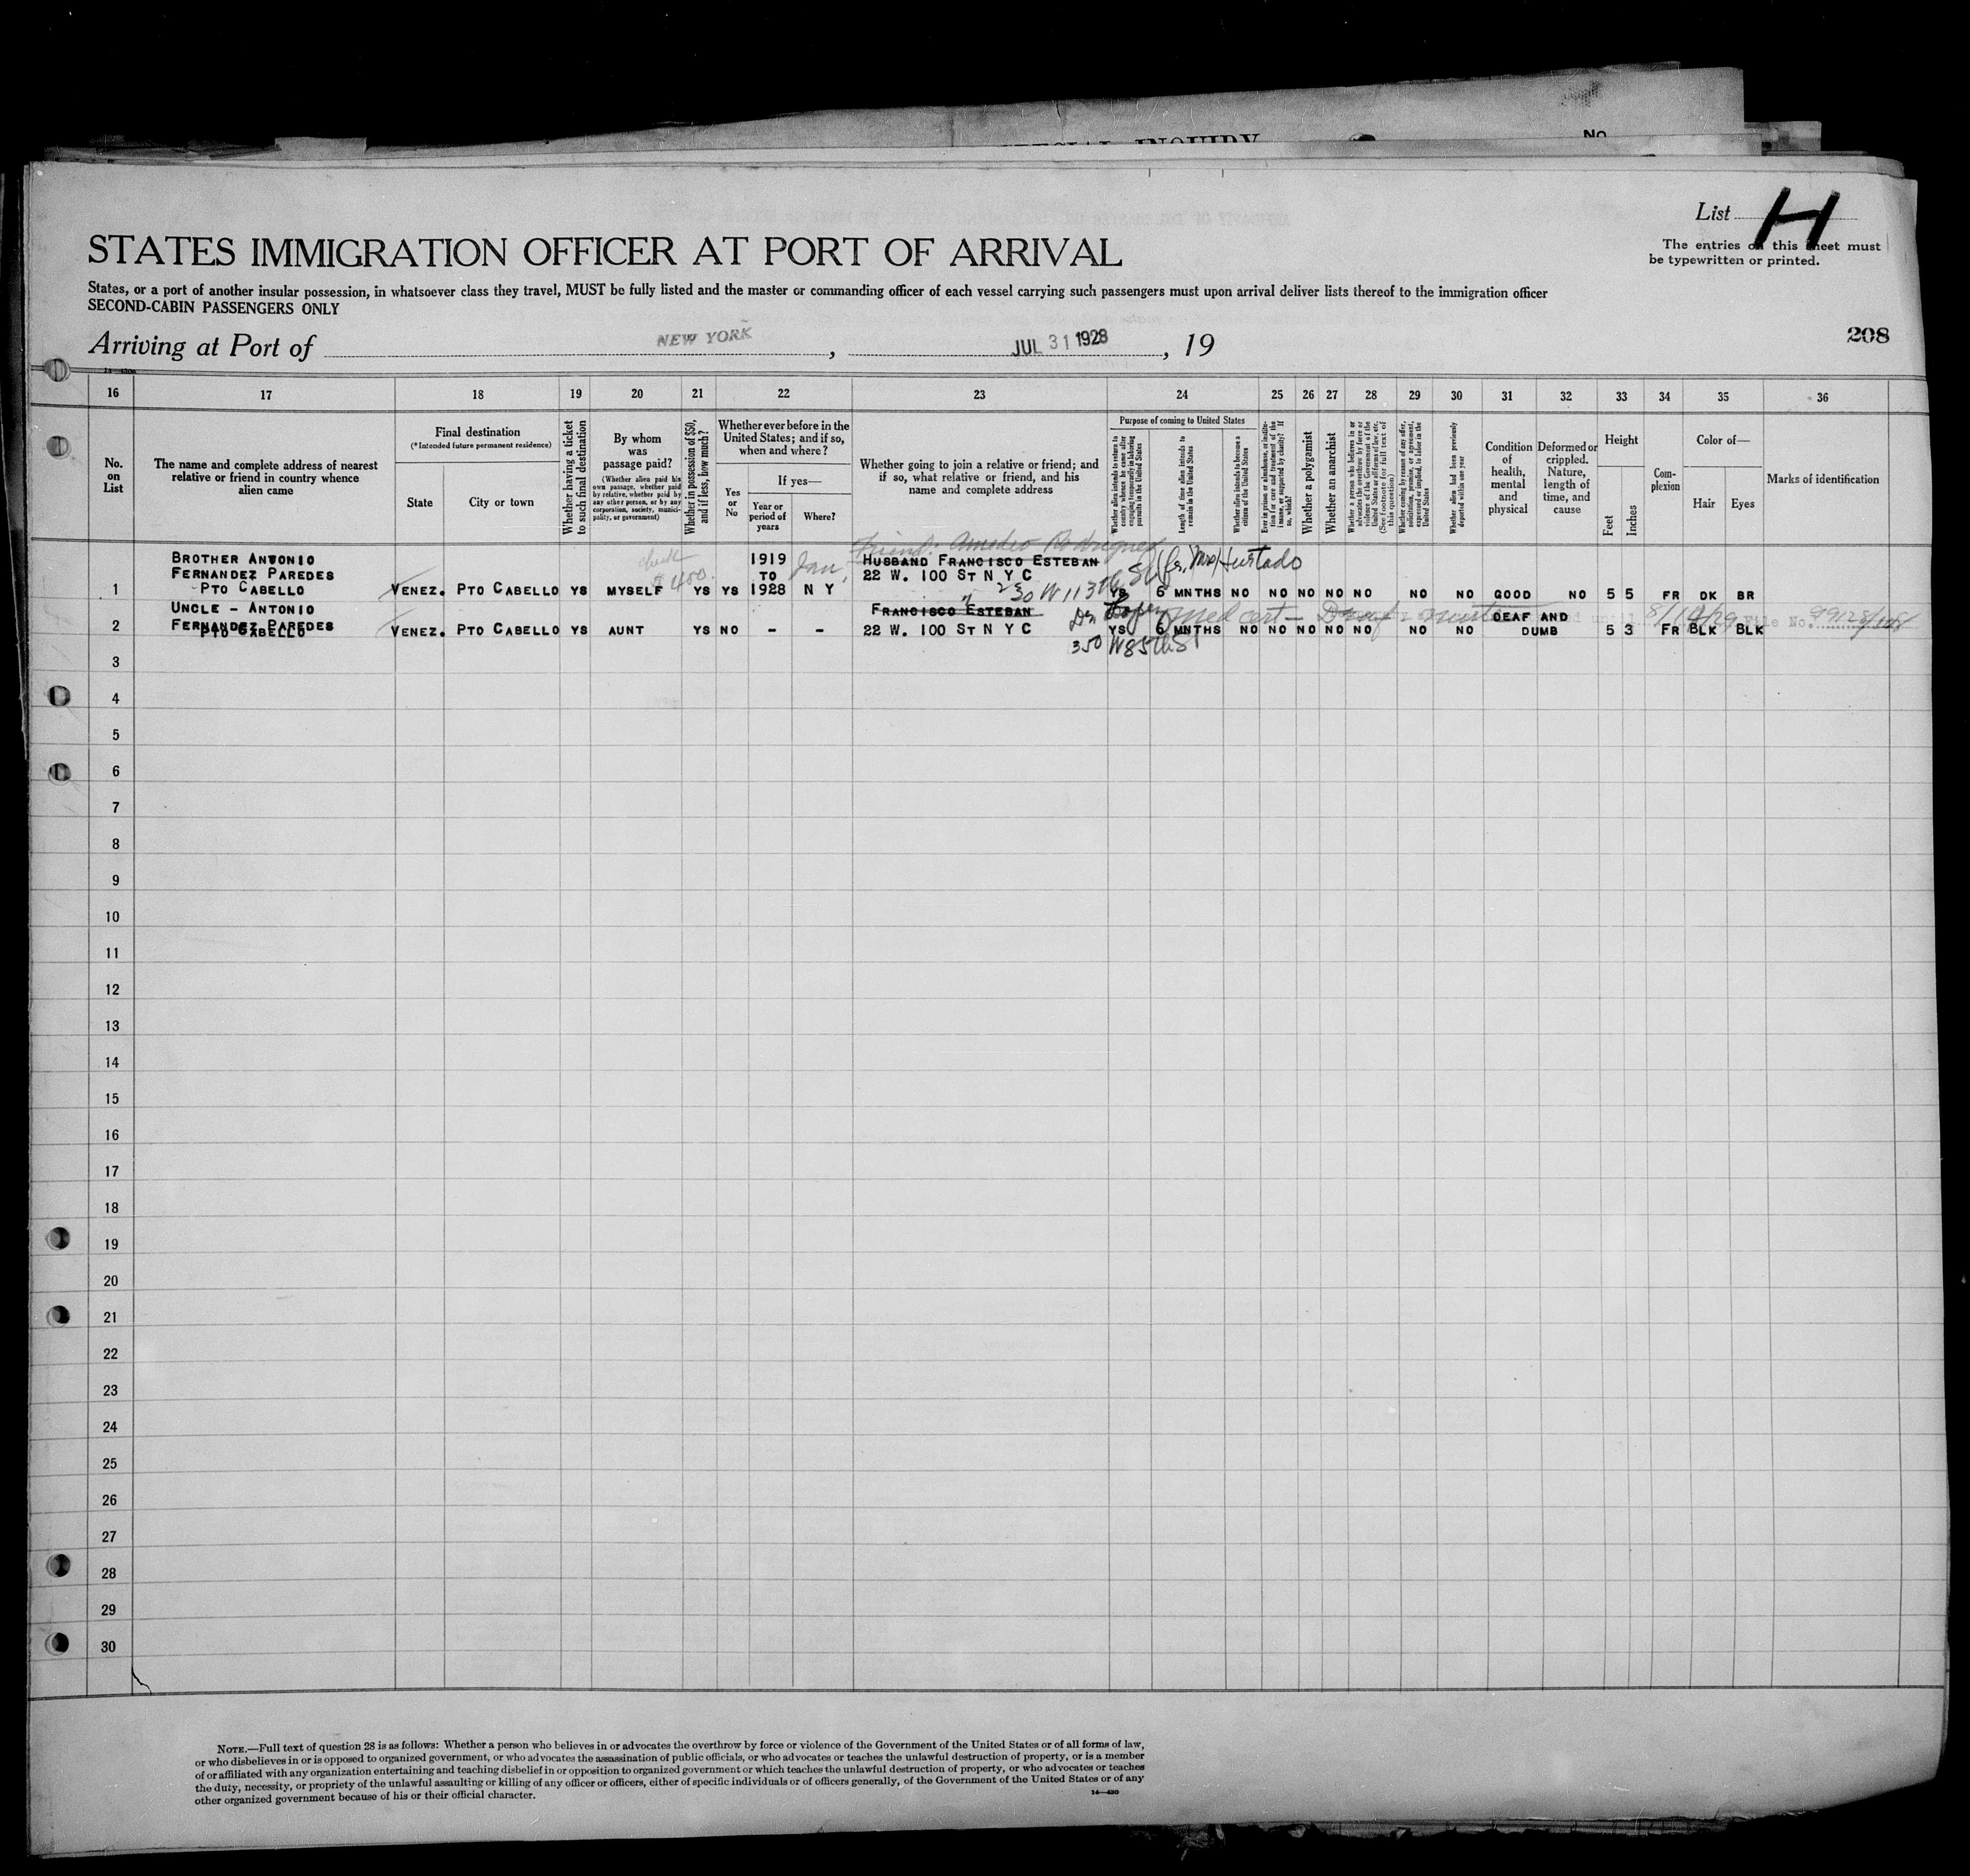 SPECIAL INQUIRY
No
List H
The entries on this sheet must
be typewritten or printed.
STATES IMMIGRATION OFFICER AT PORT OF ARRIVAL
States, or a port of another insular possession, in whatsoever class they travel, MUST be fully listed and the master or commanding officer of each vessel carrying such passengers must upon arrival deliver lists thereof to the immigration officer
SECOND-CABIN PASSENGERS ONLY
Arriving at Port of NEW YORK, JUL 31 1928, 19
208
16 17 18 19 20 21 22 23 24 25 26 27 28 29 30 31 32 33 34 35 36
No. on List
The name and complete address of nearest relative or friend in country whence alien came
Final destination
(*Intended future permanent residence)
State
City or town
Whether having a ticket to such final destination
By whom was passage paid?
(Whether alien paid his own passage, whether paid by relative, whether paid by any other person, or by any corporation, society, municipality, or government)
Whether in possession of $50, and if less, how much?
Whether ever before in the United States; and if so, when and where?
Yes or No
If yes—
Year or period of years
Where?
Whether going to join a relative or friend; and if so, what relative or friend, and his name and complete address
Purpose of coming to United States
Whether alien intends to return to country whence he came after engaging temporarily in laboring pursuits in the United States
Length of time alien intends to remain in the United States
Whether alien intends to become a citizen of the United States
Ever in prison or almshouse, or institution for care and treatment of the insane, or supported by charity? If so, which?
Whether a polygamist
Whether an anarchist
Whether a person who believes in or advocates the overthrow by force or violence of the Government of the United States or all forms of law, etc. (See footnote for full text of this question)
Whether coming by reason of any offer, solicitation, promise, or agreement, expressed or implied, to labor in the United States
Whether alien had been previously deported within one year
Condition of health, mental and physical
Deformed or crippled. Nature, length of time, and cause
Height
Feet
Inches
Complexion
Color of—
Hair
Eyes
Marks of identification
Friend: Amedeo Rodriguez
BROTHER ANTONIO check 1919 Jan, HUSBAND FRANCISCO ESTEBAN (fr. Mrs) Hurtado
FERNANDEZ PAREDES $400. TO 22 W. 100 ST N Y C
1 PTO CABELLO VENEZ. PTO CABELLO YS MYSELF YS YS 1928 N Y " 230 W 113th St YS 6 MNTHS NO NO NO NO NO NO NO GOOD NO 5 5 FR DK BR
UNCLE - ANTONIO FRANCISCO ESTEBAN Dr. Lopez med cert - Deaf mute DEAF AND File No.
FERNANDEZ PAREDES
2 PTO CABELLO VENEZ. PTO CABELLO YS AUNT YS NO - - 22 W. 100 ST N Y C YS 6 MNTHS NO NO NO NO NO NO NO DUMB 5 3 FR BLK BLK
350 W 85th St
3
4
5
6
7
8
9
10
11
12
13
14
15
16
17
18
19
20
21
22
23
24
25
26
27
28
29
30
NOTE.—Full text of question 28 is as follows: Whether a person who believes in or advocates the overthrow by force or violence of the Government of the United States or of all forms of law,
or who disbelieves in or is opposed to organized government, or who advocates the assassination of public officials, or who advocates or teaches the unlawful destruction of property, or is a member
of or affiliated with any organization entertaining and teaching disbelief in or opposition to organized government or which teaches the unlawful destruction of property, or who advocates or teaches
the duty, necessity, or propriety of the unlawful assaulting or killing of any officer or officers, either of specific individuals or of officers generally, of the Government of the United States or of any
other organized government because of his or their official character.
14—430